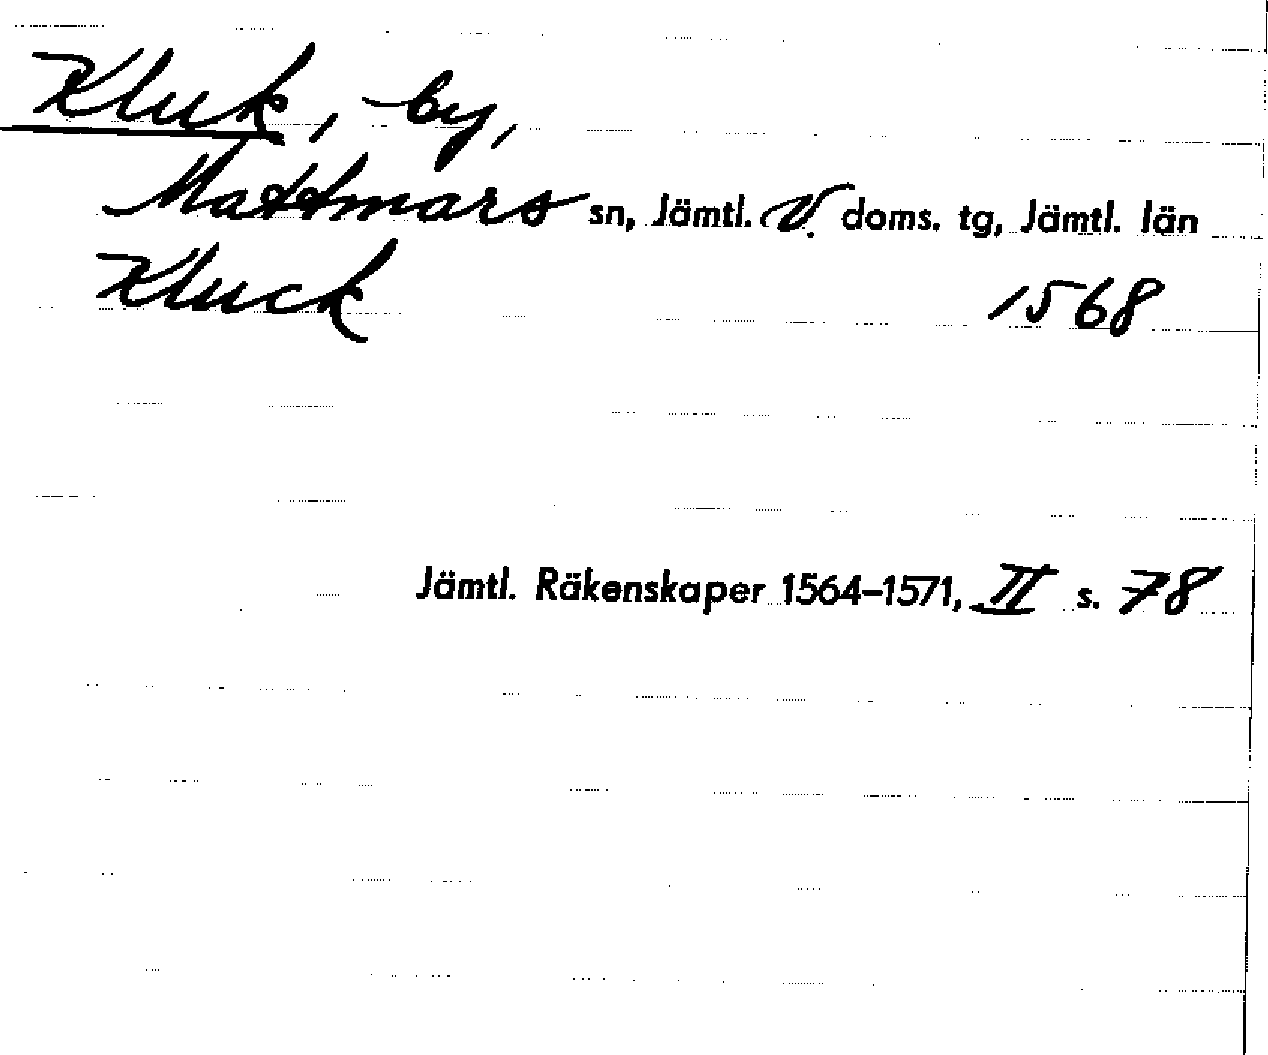 Kluk, by,
Mattmars sn, Jämtl. V. doms. tg, Jämtl. län
Kluck 1568
Jämtl. Räkenskaper 1564-1571, II s. 78